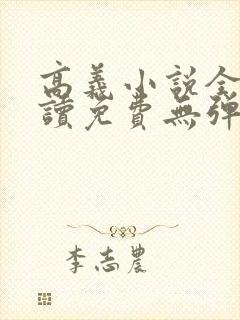 高義小說全
讀免費無彈
李志農